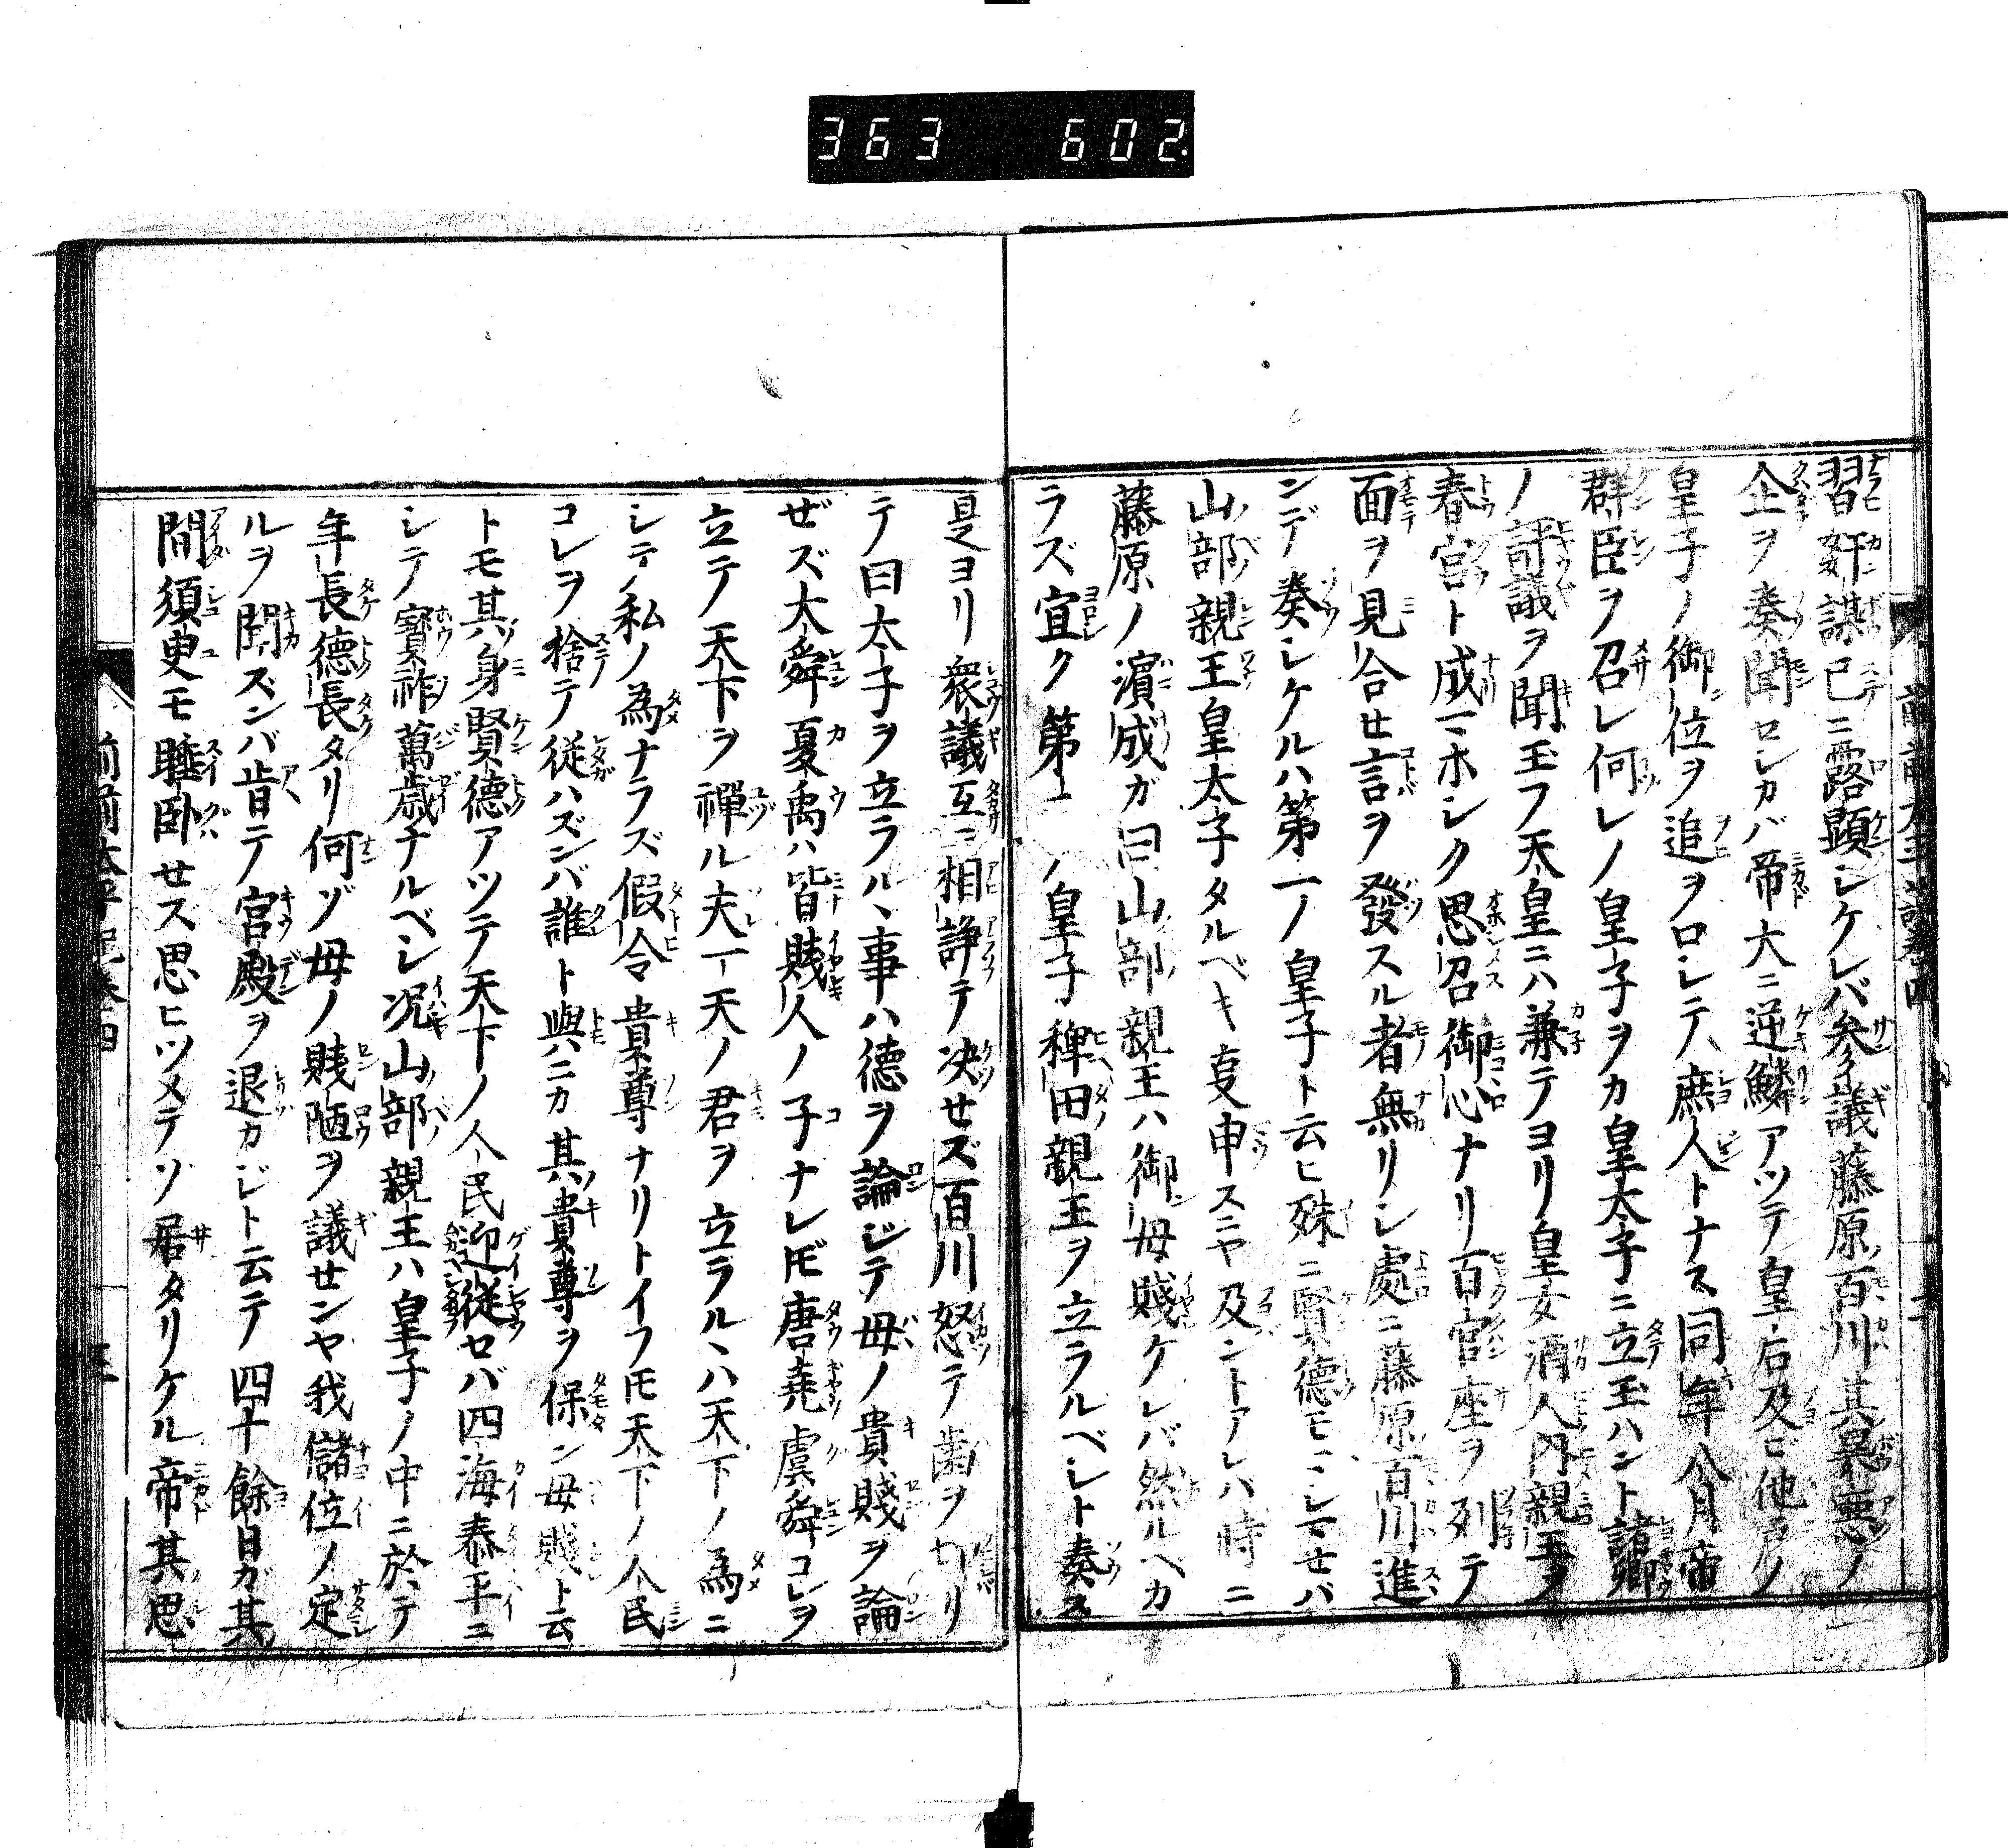 363 602
習奸謀已ニ露顕シケレバ参議藤原百川其暴悪ノ
企ヲ奏聞ロシカバ帝大ニ逆鱗アツテ皇后及ビ他戸ノ
皇子ノ御位ヲ追ヲロシテ庶人トナス同年八月帝
群臣ヲ召レ何レノ皇子ヲカ皇太子ニ立玉ハント諸卿
ノ評議ヲ聞玉フ天皇ニハ兼テヨリ皇女酒人内親王ヲ
春宮ト成マホシク思召御心ナリ百官座ヲ列テ
面ヲ見合セ言ヲ發スル者無リシ處ニ藤原百川進
ンデ奏シケルハ第一ノ皇子ト云ヒ殊ニ賢德モマシマセバ
山部親王皇太子タルベキ叓申スニヤ及ントアレバ時ニ
藤原ノ濱成ガ曰山部親王ハ御母賤ケレバ然ルベカ
ラズ宜ク第二ノ皇子稗田親王ヲ立ラルベシト奏ス
是ヨリ衆議互ニ相諍テ决セズ百川怒テ歯ヲ切リ
テ曰太子ヲ立ラルヽ事ハ德ヲ論ジテ母ノ貴賤ヲ論
ゼズ大舜夏禹ハ皆賤人ノ子ナレ𪜈唐堯虞舜コレヲ
立テ天下ヲ禪ル夫一天ノ君ヲ立ラルヽハ天下ノ為ニ
シテ私ノ為ナラズ假令貴尊ナリトイフ𪜈天下ノ人民
コレヲ捨テ従ハズンバ誰ト與ニカ其貴尊ヲ保ン母賤ト云
トモ其身賢德アツテ天下ノ人民迎従セバ四海泰平ニ
シテ寳祚萬歳ナルベシ况山部親王ハ皇子ノ中ニ於テ
年長德長タリ何ゾ母ノ賤陋ヲ議センヤ我儲位ノ定
ルヲ聞ズンバ肯テ宮殿ヲ退カジト云テ四十餘日ガ其
間須臾モ睡卧セス思ヒツメテソ居タリケル帝其思